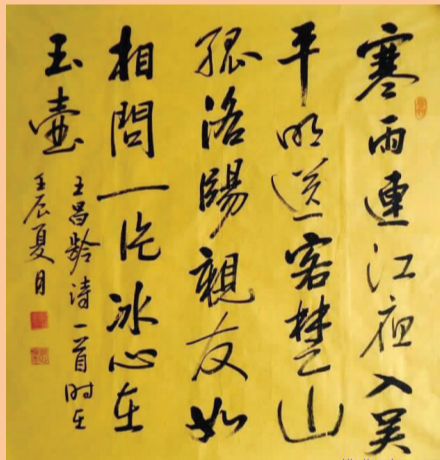 寒雨連江夜入吴
平明送客楚山
孤洛陽親友如
相問一片冰心在
玉壺
王昌龄诗一首时在
壬辰夏月